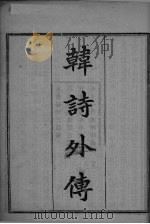 韓詩外傳